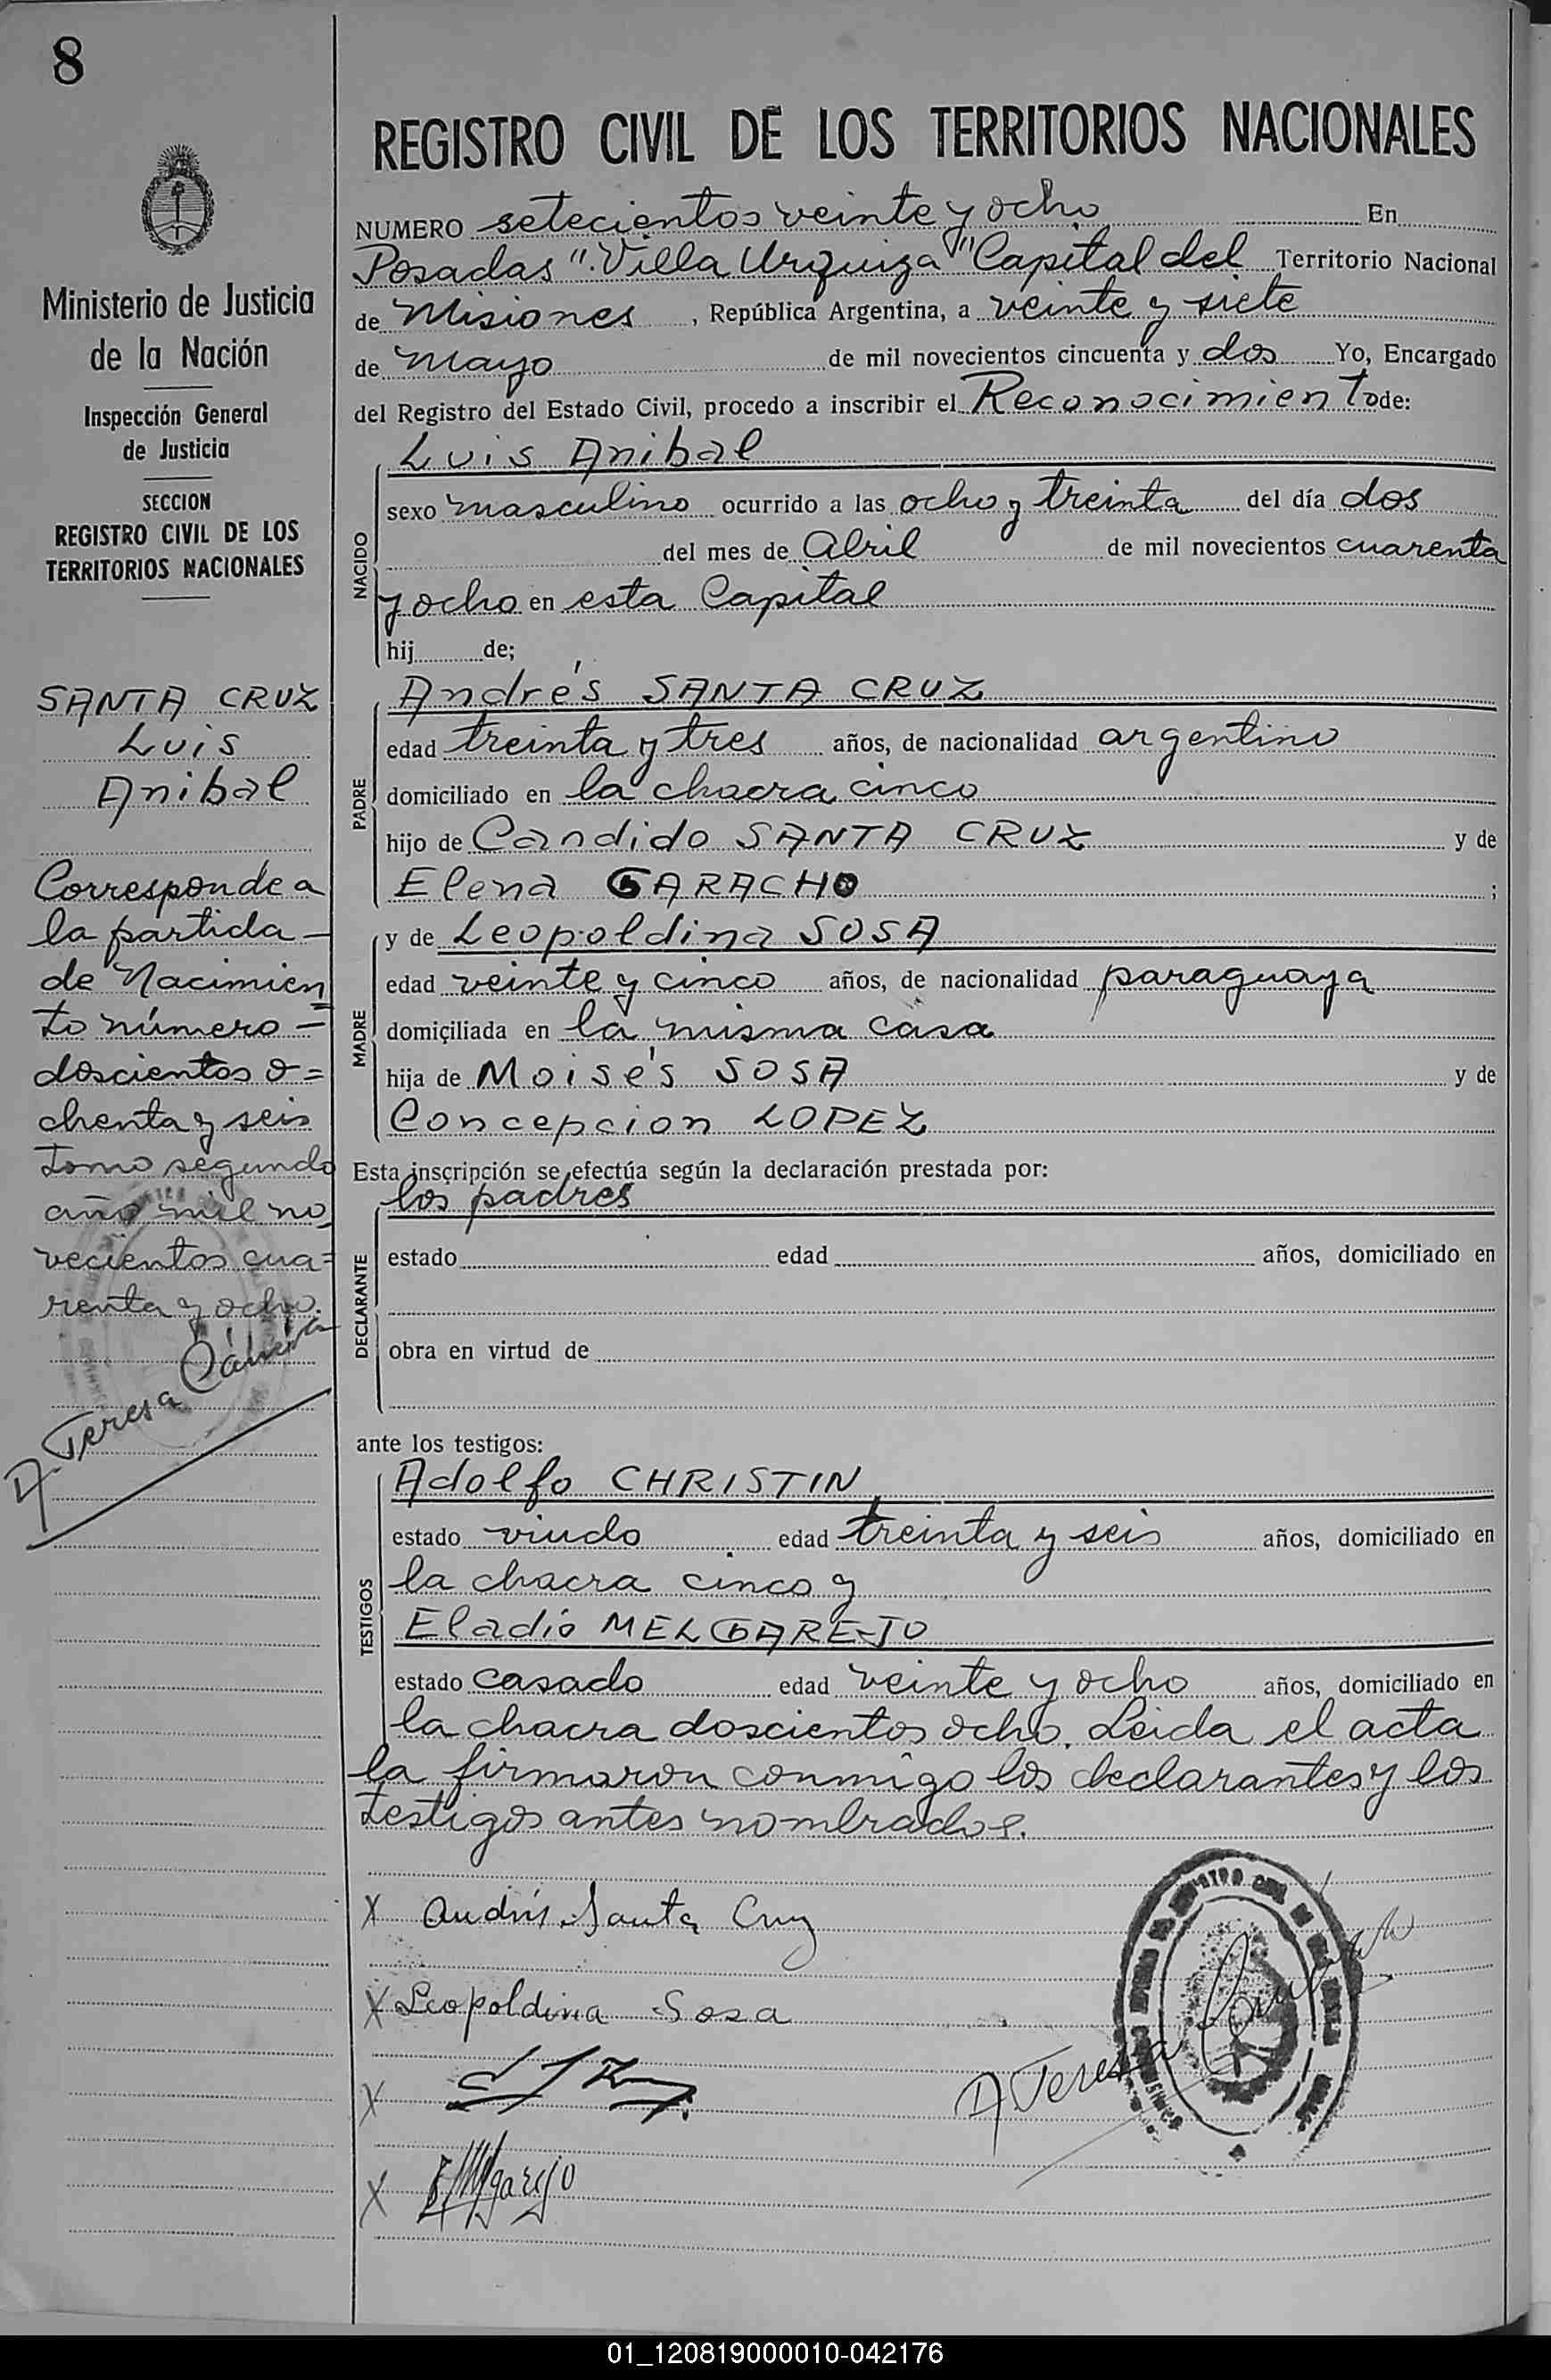 8
Ministerio de Justicia
de la Nación
Inspección General
de Justicia
SECCION
REGISTRO CIVIL DE LOS
TERRITORIOS NACIONALES
SANTA CRUZ
Luis
Anibal
Corresponde a
la partida
de Nacimien
to número
doscientos o=
chenta y seis
tomo segundo
año mil no
vecientos cua=
renta y ocho.
A. Teresa
REGISTRO CIVIL DE LOS TERRITORIOS NACIONALES
NUMERO setecientos veinte y ocho En
Posadas "Villa Urquiza" Capital del Territorio Nacional
de Misiones, República Argentina, a veinte y siete
de Mayo de mil novecientos cincuenta y dos Yo, Encargado
del Registro del Estado Civil, procedo a inscribir el Reconocimiento de:
NACIDO
Luis Anibal
sexo masculino ocurrido a las ocho y treinta del día dos
del mes de Abril de mil novecientos cuarenta
y ocho en esta Capital
hij de;
PADRE
Andrés SANTA CRUZ
edad treinta y tres años, de nacionalidad argentino
domiciliado en la chacra cinco
hijo de Candido SANTA CRUZ y de
Elena GARACHO ;
MADRE
y de Leopoldina SOSA
edad veinte y cinco años, de nacionalidad paraguaya
domiciliada en la misma casa
hija de Moisés SOSA y de
Concepcion LOPEZ
Esta inscripción se efectúa según la declaración prestada por:
DECLARANTE
los padres
estado edad años, domiciliado en
obra en virtud de
ante los testigos:
TESTIGOS
Adolfo CHRISTIN
estado viudo edad treinta y seis años, domiciliado en
la chacra cinco y
Eladio MELGAREJO
estado casado edad veinte y ocho años, domiciliado en
la chacra doscientos ocho. Leida el acta
la firmaron conmigo los declarantes y los
testigos antes nombrados.
X Andrés Santa Cruz
X Leopoldina Sosa
X
A Teresa
X EMelgarejo
01_120819000010-042176